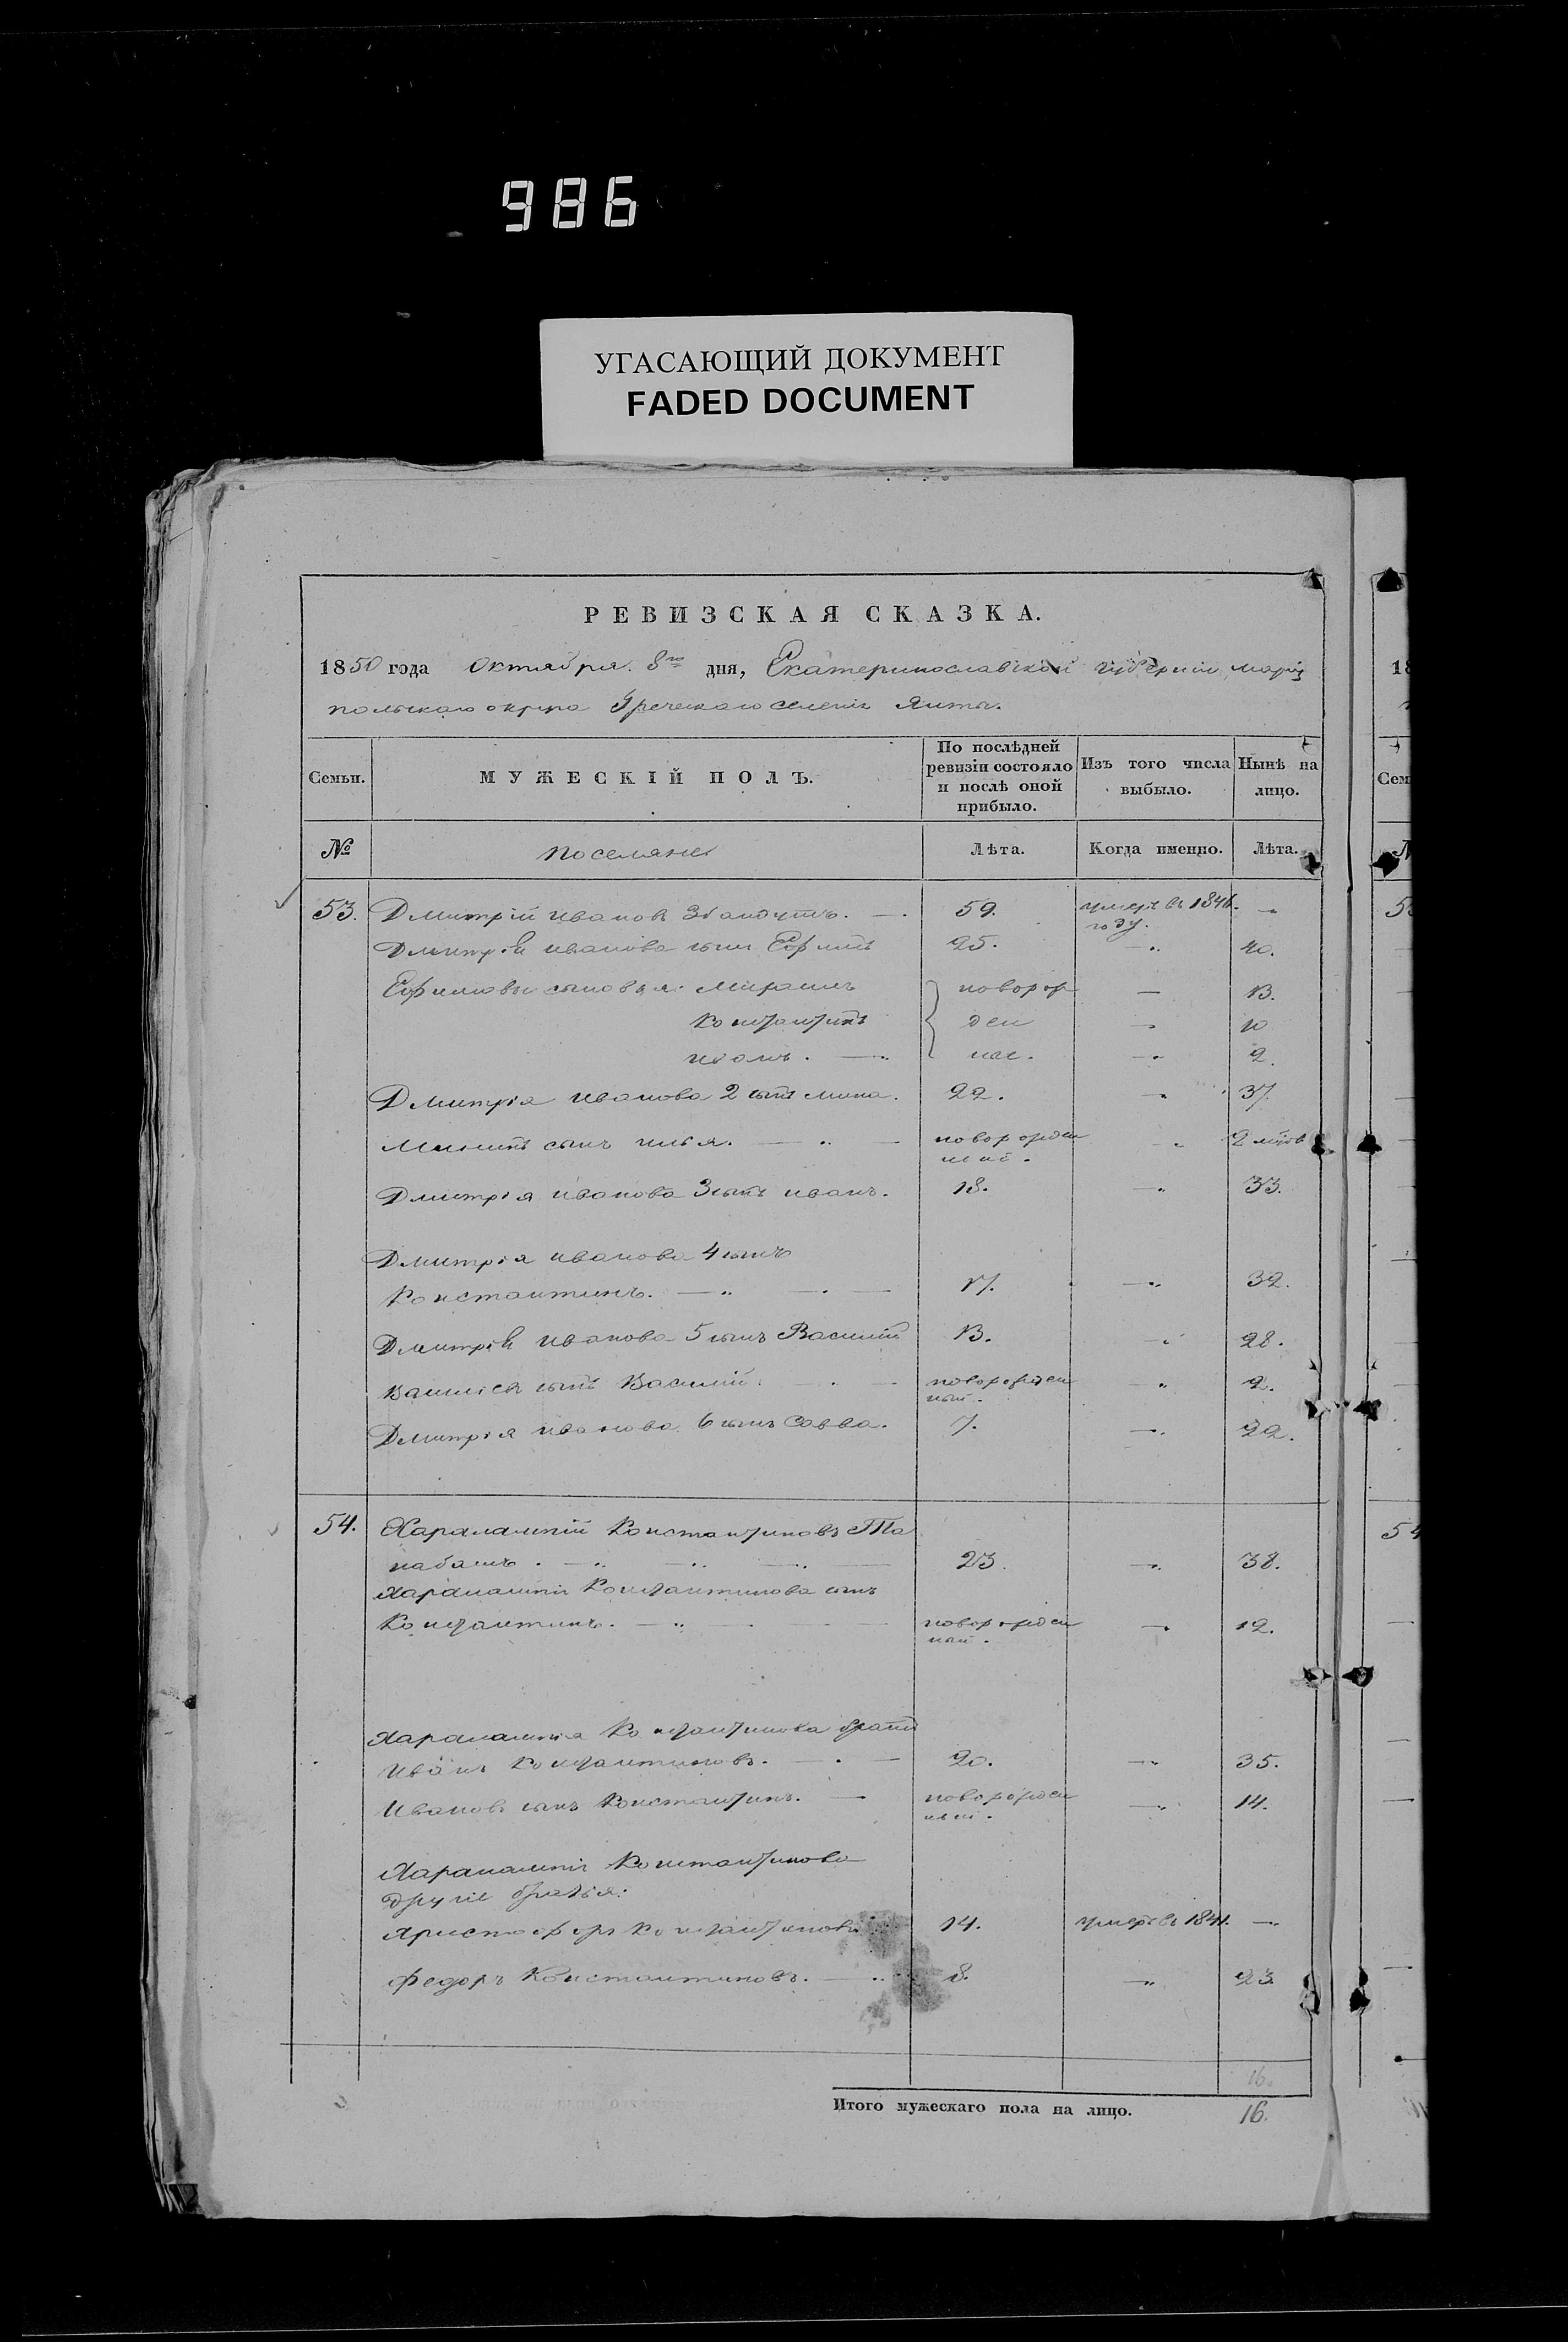 986
УГАСАЮЩИЙ ДОКУМЕНТ
FADED DOCUMENT
РЕВИЗСКАЯ СКАЗКА.
1850 года Октября 8го дня, Екатеринославской губернии мариу
польскаго округа Греческаго селенія Ялты.
Семьи. МУЖЕСКІЙ ПОЛЪ. По послѣдней ревизіи состояло и послѣ оной прибыло. Изъ того числа выбыло. Нынѣ на лицо.
№ поселяне Лѣта. Когда именно. Лѣта.
53. Дмитрій Иванов 59. умеръ въ 1846.
году.
Дмитрія иванова сын Ефимъ 25. 40.
Ефимовы сыновья: новорож 13.
Константинъ ден 10
иванъ. ные. 2.
Дмитрія иванова 2 сынъ мина. 22. 37.
Мининъ сынъ илья. новорожден 2 мѣсяцовъ
ный.
Дмитрія иванова 3 сынъ иванъ. 18. 33.
Дмитрія иванова 4 сынъ
Константинъ. 17. 32.
Дмитрія иванова 5 сынъ Василий 13. 28.
Василія сынъ Василий. новорожден 2.
ный.
Дмитрія иванова 6 сынъ Савва. 7. 22.
54. Харалампій Константиновъ Та
набашъ. 23. 38.
Харалампія Константинова сынъ
Константинъ. новорожден 12.
ный.
Харалампія Константинова братъ
Иванъ Константиновъ. 20. 35.
Иванов сынъ Константинъ. новорожден 14.
ный.
Харалампія Константинова
другие братья:
Христофоръ Константиновъ 14. умеръ въ 1841.
Федоръ Константиновъ. 8. 23
16.
Итого мужескаго пола на лицо. 16.